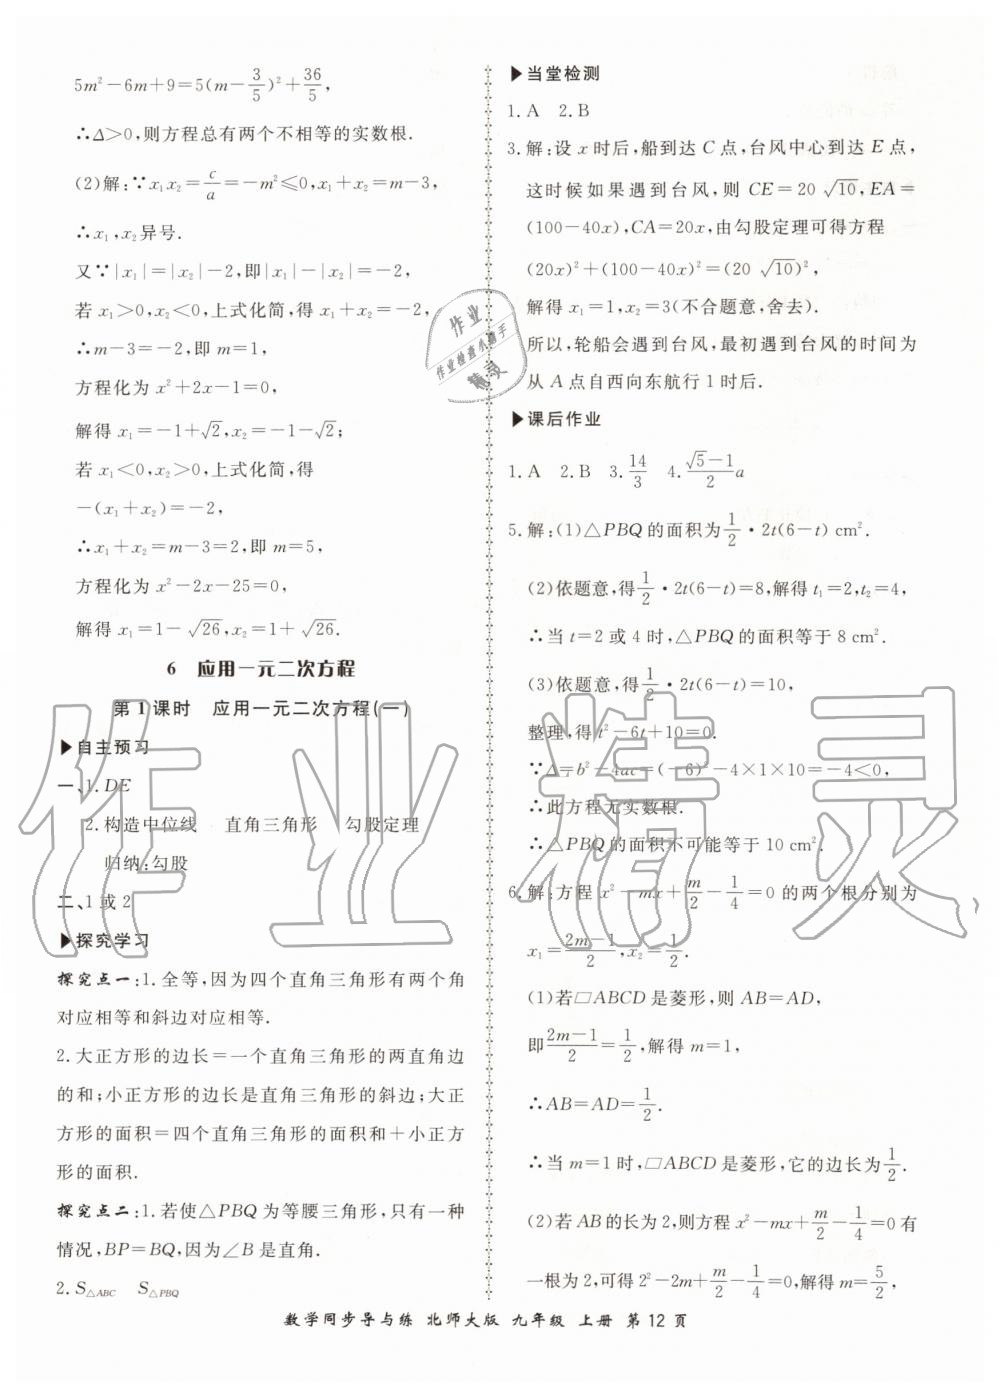 5m²−6m+9=5(m−3/5)²+36/5,
∴Δ>0,则方程总有两个不相等的实数根.
(2)解:∵x₁x₂=c/a=−m²≤0,x₁+x₂=m−3,
∴x₁,x₂异号.
又∵|x₁|=|x₂|−2,即|x₁|−|x₂|=−2,
若x₁>0,x₂<0,上式化简,得x₁+x₂=−2,
∴m−3=−2,即m=1,
方程化为x²+2x−1=0,
解得x₁=−1+√2,x₂=−1−√2;
若x₁<0,x₂>0,上式化简,得
−(x₁+x₂)=−2,
∴x₁+x₂=m−3=2,即m=5,
方程化为x²−2x−25=0,
解得x₁=1−√26,x₂=1+√26.
6 应用一元二次方程
第1课时 应用一元二次方程(一)
▶自主预习
一、1.DE
2.构造中位线 直角三角形 勾股定理
归纳:勾股
二、1或2
▶探究学习
探究点一:1.全等,因为四个直角三角形有两个角
对应相等和斜边对应相等.
2.大正方形的边长=一个直角三角形的两直角边
的和;小正方形的边长是直角三角形的斜边;大正
方形的面积=四个直角三角形的面积和+小正方
形的面积.
探究点二:1.若使△PBQ为等腰三角形,只有一种
情况,BP=BQ,因为∠B是直角.
2.S△ABC S△PBQ
▶当堂检测
1.A 2.B
3.解:设x时后,船到达C点,台风中心到达E点,
这时候如果遇到台风,则CE=20√10,EA=
(100−40x),CA=20x,由勾股定理可得方程
(20x)²+(100−40x)²=(20√10)²,
解得x₁=1,x₂=3(不合题意,舍去).
所以,轮船会遇到台风,最初遇到台风的时间为
从A点自西向东航行1时后.
▶课后作业
1.A 2.B 3.14/3 4.(√5−1)/2 a
5.解:(1)△PBQ的面积为1/2·2t(6−t) cm².
(2)依题意,得1/2·2t(6−t)=8,解得t₁=2,t₂=4,
∴当t=2或4时,△PBQ的面积等于8 cm².
(3)依题意,得1/2·2t(6−t)=10,
整理,得t²−6t+10=0.
∵Δ=b²−4ac=(−6)²−4×1×10=−4<0,
∴此方程无实数根.
∴△PBQ的面积不可能等于10 cm².
6.解:方程x²−mx+m/2−1/4=0的两个根分别为
x₁=(2m−1)/2,x₂=1/2.
(1)若▱ABCD是菱形,则AB=AD,
即(2m−1)/2=1/2,解得m=1,
∴AB=AD=1/2.
∴当m=1时,▱ABCD是菱形,它的边长为1/2.
(2)若AB的长为2,则方程x²−mx+m/2−1/4=0有
一根为2,可得2²−2m+m/2−1/4=0,解得m=5/2,
数学同步导与练 北师大版 九年级 上册 第12页
作业
作业检查小助手
精灵
作业精灵